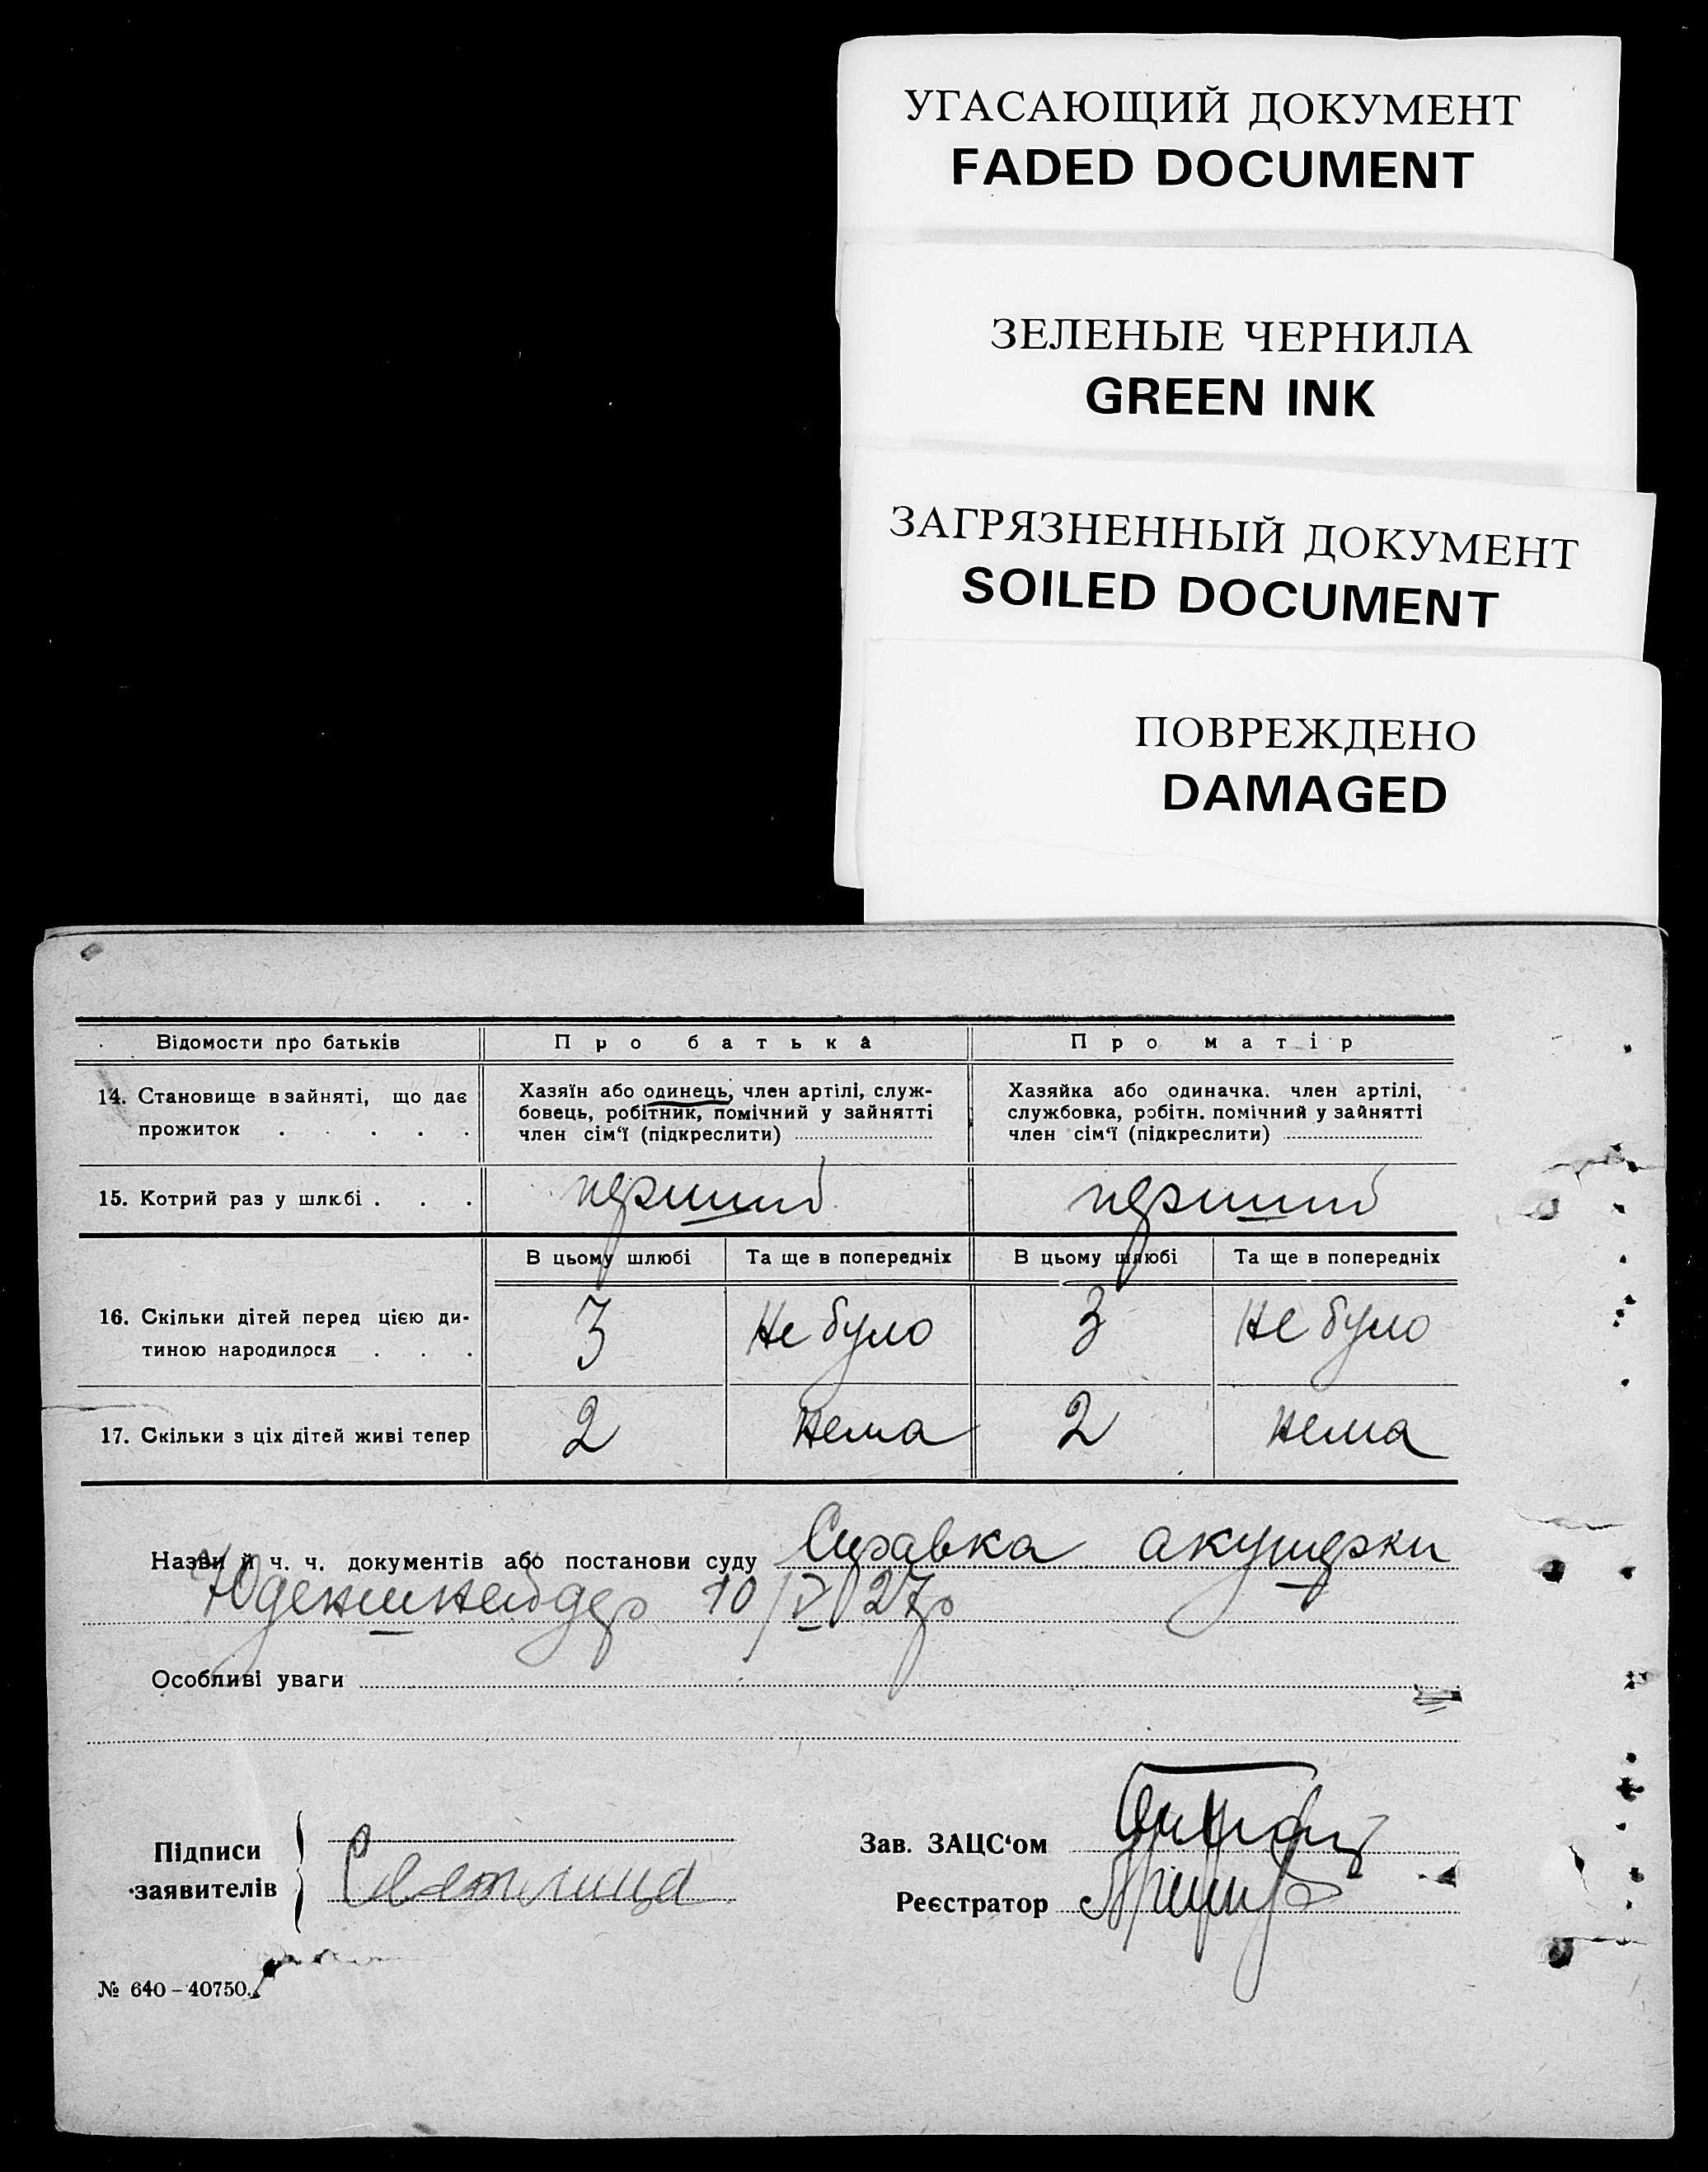 УГАСАЮЩИЙ ДОКУМЕНТ
FADED DOCUMENT
ЗЕЛЕНЫЕ ЧЕРНИЛА
GREEN INK
ЗАГРЯЗНЕННЫЙ ДОКУМЕНТ
SOILED DOCUMENT
ПОВРЕЖДЕНО
DAMAGED
Відомости про батьків Про батька Про матір
14. Становище в зайняті, що дає прожиток . . . . .
Хазяїн або одинець, член артілі, служ-
бовець, робітник, помічний у зайнятті
член сім‘ї (підкреслити)
Хазяйка або одиначка. член артілі,
службовка, робітн. помічний у зайнятті
член сім‘ї (підкреслити)
15. Котрий раз у шлюбі . . . перший перший
В цьому шлюбі Та ще в попередніх В цьому шлюбі Та ще в попередніх
16. Скільки дітей перед цією ди-
тиною народилося . . . 3 Не було 3 Не було
17. Скільки з ціх дітей живі тепер 2 Нема 2 Нема
Назви й ч. ч. документів або постанови суду Справка акушерки
Юденшнейдер 10/V 27р
Особливі уваги
Підписи
заявителів
Зав. ЗАЦС‘ом
Реєстратор
№ 640 – 40750.